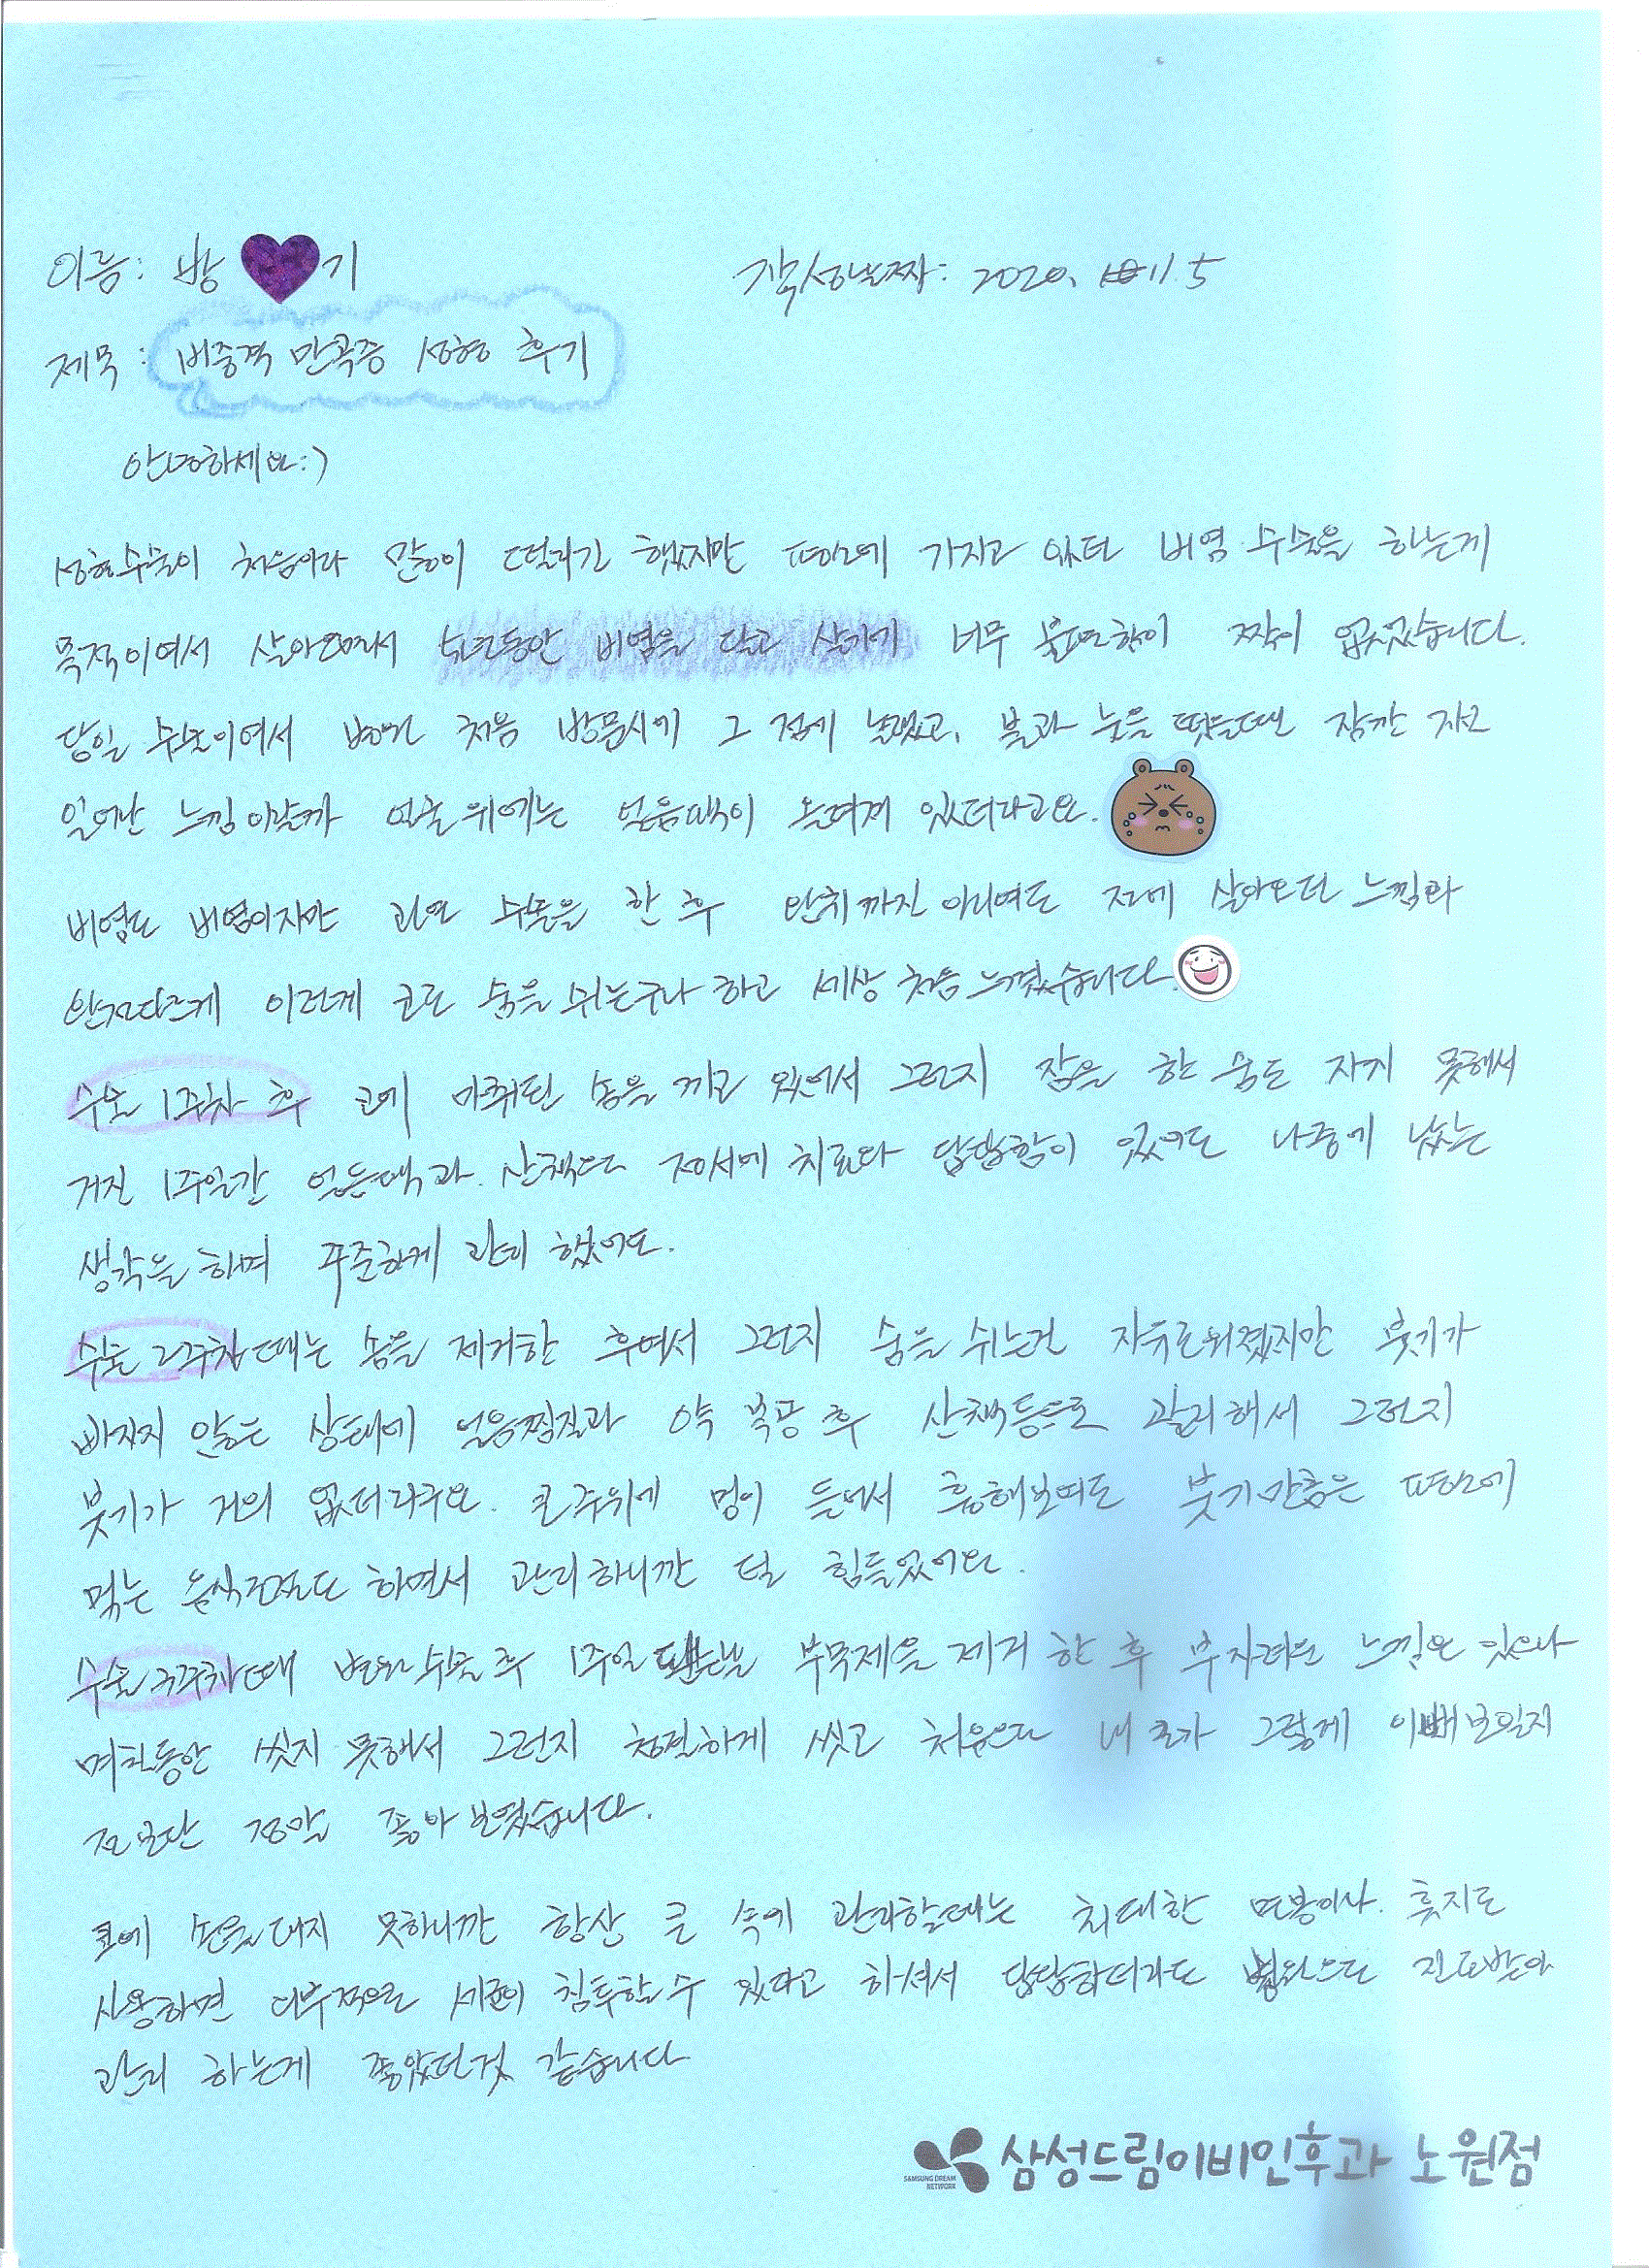 이름: 방 기
작성날짜: 2020. 11. 5
제목: 비중격 만곡증 성형 후기
안녕하세요:)
성형수술이 처음이라 많이 떨리긴 했지만 평소에 가지고 있던 비염 수술을 하는게
목적이여서 살아오면서 몇년동안 비염을 달고 살기에 너무 불편함이 짝이 없었습니다.
당일 수술이여서 병원 처음 방문시에 그 점에 놀랬고, 불과 눈을 떴을때는 잠깐 자고
일어난 느낌이랄까 얼굴위에는 얼음팩이 올려져 있더라고요.
비염도 비염이지만 과연 수술을 한 후 완치까진 아니여도 전에 살아오던 느낌과
완전다르게 이렇게 코로 숨을 쉬는구나 하고 세상 처음 느꼈습니다.
수술 1주차 후 코에 마취된 솜을 끼고 있어서 그런지 잠을 한 숨도 자지 못해서
거진 1주일간 얼음팩과 산책으로 자세에 치료와 답답함이 있어도 나중에 낫는
생각을 하며 꾸준하게 관리 했어요.
수술 2주차때는 솜을 제거한 후여서 그런지 숨을 쉬는건 자유로워졌지만 붓기가
빠지지 않은 상태에 얼음찜질과 약 복용 후 산책등으로 관리해서 그런지
붓기가 거의 없더라구요. 코 주위에 멍이 들어서 흉해보여도 붓기만큼은 평소에
먹는 음식조절도 하면서 관리하니깐 덜 힘들었어요.
수술 3주차때 병원 수술 후 1주일 부목제을 제거 한 후 부자연도 느낌은 있으나
며칠동안 씻지 못해서 그런지 청결하게 씻고 처음으로 내 코가 그렇게 이뻐보일지
전보단 정말 좋아 보였습니다.
코에 손을대지 못하니깐 항상 콧 속에 관리할때는 최대한 면봉이나 휴지로
사용하면 외부적으로 세균이 침투할 수 있다고 하셔서 답답하더라도 병원으로 진료받아
관리 하는게 좋았던것 같습니다
SAMSUNG DREAM
NETWORK
삼성드림이비인후과 노원점